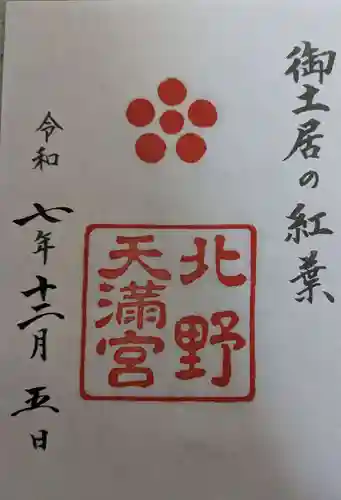 御土居の紅葉
北野
天満宮
令和
七年十二月五日